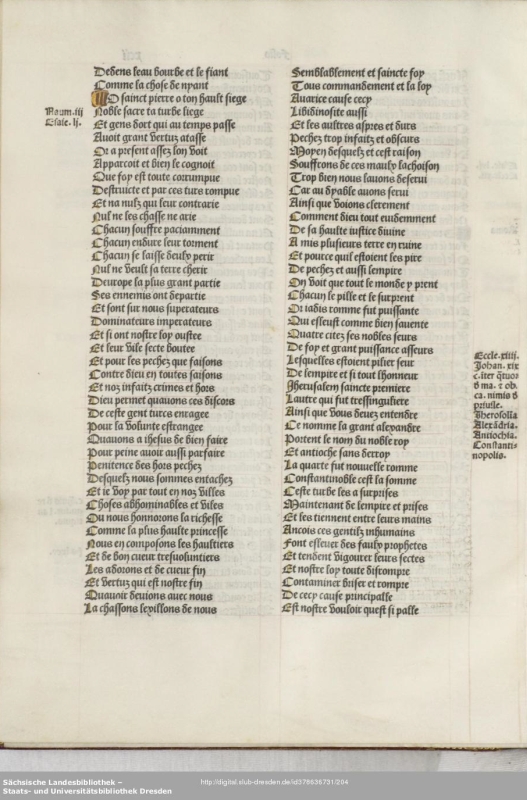 Dedens leau bourbe et le fiant
Comme la chose de nyant
O sainct pierre o ton hault siege
Noble sacre ta turbe liege
Et gens dort qui au temps passe
Avoit grant vertuz atasse
Or a present assez lon voit
Apparcoit et bien le cognoit
Que foy est toute corrumpue
Destruicte et par ces turs rompue
Et na nulz qui leur contrarie
Nul ne les chasse ne arie
Chacun souffre paciamment
Chacun endure leur torment
Chacun se laisse deulx perir
Nul ne veult sa terre cherir
Deurope la plus grant partie
Ses ennemis ont departie
Et sont sur nous superateurs
Dominateurs imperateurs
Et si ont nostre loy oustee
Et leur vile secte boutee
Et pour les pechez que faisons
Contre dieu en toutes saisons
Et noz infaitz crimes et hors
Dieu permet quauons ces discors
De ceste gent turcs enragee
Pour la volunte estrangee
Quauons a ihesus de bien faire
Pour peine avoir aussi parfaire
Penitence des hors pechez
Desquelz nous sommes entachez
Et ie voy par tout en noz villes
Choses abhominables et viles
Ou nous honnorons la richesse
Comme la plus haulte princesse
Nous en composons les haultiers
Et de bon cueur tresvoluntiers
Les adorons et de cueur fin
Et vertuz qui est nostre fin
Quauoir deuions auec nous
La chassons lexillons de nous
Naum.iii
Esaie. lj.
Semblablement et saincte foy
Tous commandement et la loy
Auarice cause cecy
Libidinosite aussi
Et les aultres aspres et durs
Pechez trop infaitz et obscurs
Moyen desquelz et cest raison
Souffrons de ces maulx lachoison
Trop bien nous lauons deserui
Car au dyable auons serui
Ainsi que voions clerement
Comment dieu tout euidemment
De sa haulte iustice diuine
A mis plusieurs terre en ruine
Et pource quil estoient les pire
De pechez et aussi lempire
On voit que tout le monde y prent
Chacun le pille et le surprent
Or iadis romme fut puissante
Qui esleust comme bien sauente
Quatre citez ses nobles seurs
De foy et grant puissance asseurs
Lesquelles estoient pilier seur
De lempire et si tout lhonneur
Jherusalem saincte premiere
Lautre qui fut tressinguliere
Ainsi que vous deuez entendre
Ce nomme la grant alexandre
Portent le nom du noble roy
Et antioche sans derroy
La quarte fut nouuelle romme
Constantinoble cest la somme
Ceste turbe les a surprises
Maintenant de lempire et prises
Et les tiennent entre leurs mains
Ancois ces gentilz inhumains
Font esleuer des faulx prophetes
Et tendent vigourer leurs sectes
Et nostre loy toute disrompre
Contaminer briser et rompre
De cecy cause principalle
Est nostre vouloir quest si palle
Eccle.xiiij.
Johan. xix
c.iter q̃tuor
d ma. ⁊ ob.
ca. nimis d
priuile.
Jherosolla
Alexãdria.
Antiochia.
Constanti-
nopolis.
Sächsische Landesbibliothek –
Staats- und Universitätsbibliothek Dresden
http://digital.slub-dresden.de/id378636731/204